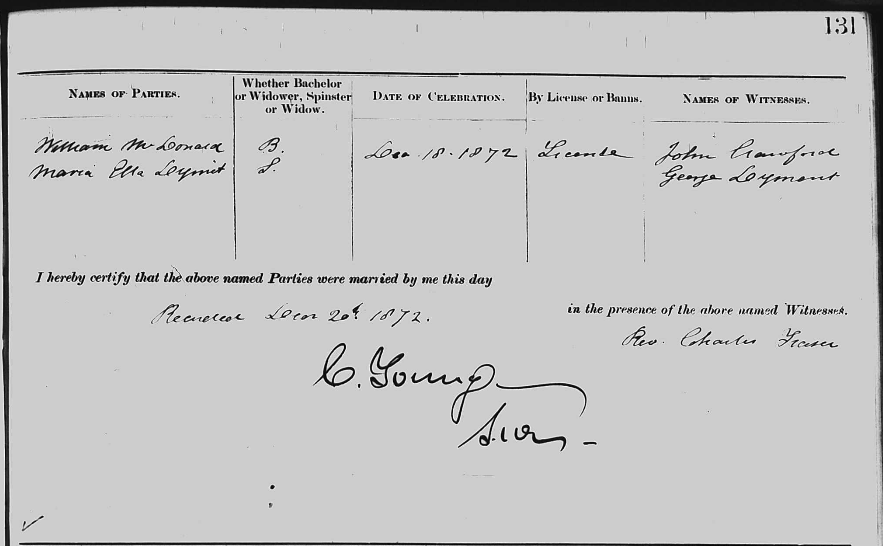 131
NAMES OF PARTIES.
Whether Bachelor or Widower, Spinster or Widow.
DATE OF CELEBRATION.
By License or Banns.
NAMES OF WITNESSES.
William McDonald
B.
Dec 18. 1872
License
John Crawford
Maria Ella Dymit
S.
George Dyment
I hereby certify that the above named Parties were married by me this day
in the presence of the above named Witnesses.
Recorded Decr 20th 1872.
Rev. Charles Fraser
C. Young